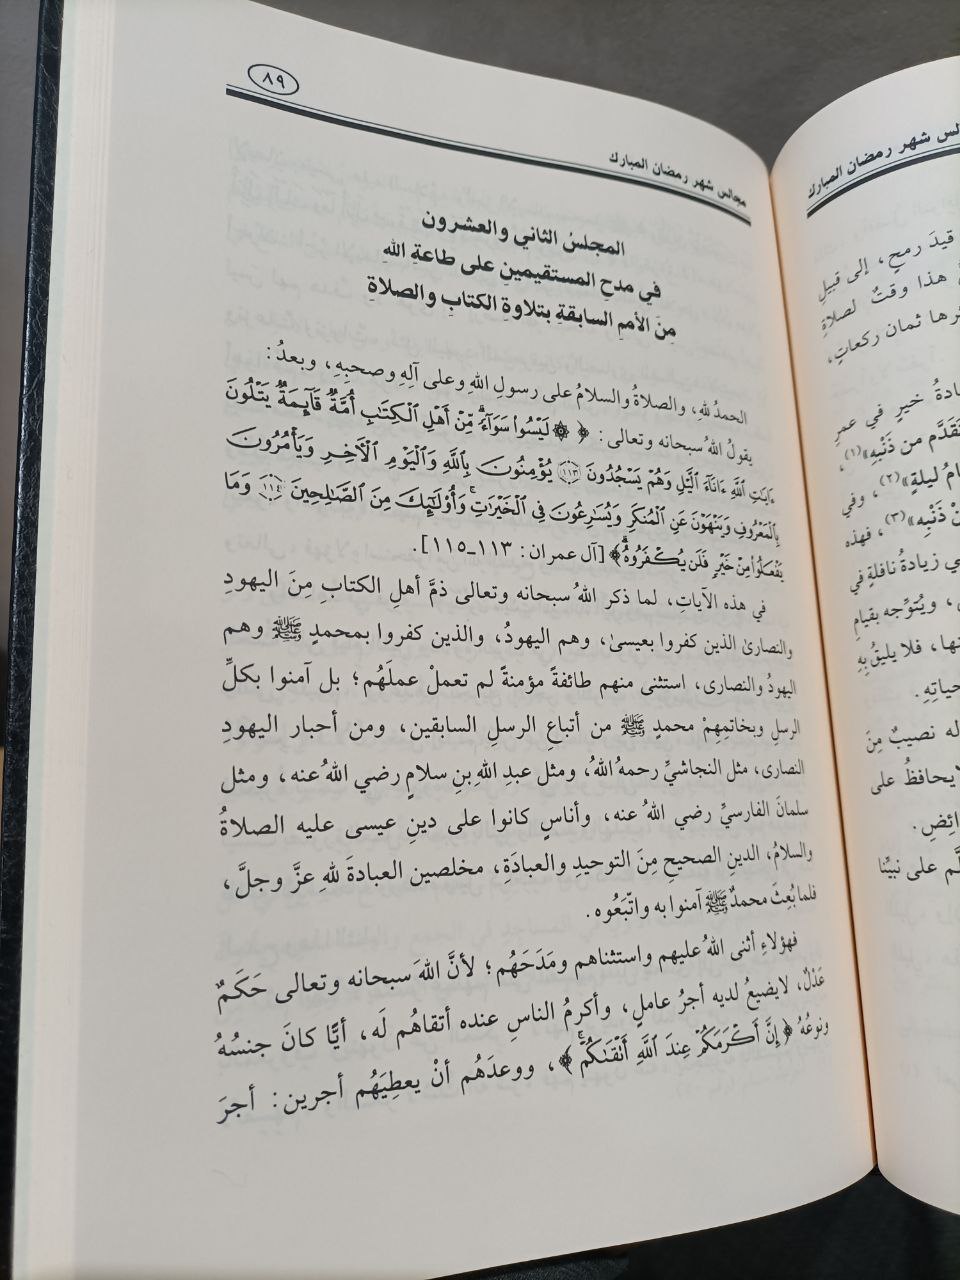 ٨٩
مجالس شهر رمضان المبارك
المجلسُ الثاني والعشرون
في مدحِ المستقيمينِ على طاعةِ اللهِ
مِنَ الأممِ السابقةِ بتلاوةِ الكتابِ والصلاةِ
الحمدُ للهِ، والصلاةُ والسلامُ على رسولِ اللهِ وعلى آلِهِ وصحبِهِ، وبعدُ:
يقولُ اللهُ سبحانه وتعالى: ﴿ ۞ لَيْسُوا۟ سَوَآءً ۗ مِّنْ أَهْلِ ٱلْكِتَٰبِ أُمَّةٌ قَآئِمَةٌ يَتْلُونَ
ءَايَٰتِ ٱللَّهِ ءَانَآءَ ٱلَّيْلِ وَهُمْ يَسْجُدُونَ ١١٣ يُؤْمِنُونَ بِٱللَّهِ وَٱلْيَوْمِ ٱلْأَخِرِ وَيَأْمُرُونَ
بِٱلْمَعْرُوفِ وَيَنْهَوْنَ عَنِ ٱلْمُنكَرِ وَيُسَٰرِعُونَ فِى ٱلْخَيْرَٰتِ ۖ وَأُو۟لَٰٓئِكَ مِنَ ٱلصَّٰلِحِينَ ١١٤ وَمَا
يَفْعَلُوا۟ مِنْ خَيْرٍ فَلَن يُكْفَرُوهُ ۗ﴾ [آل عمران: ١١٣-١١٥].
في هذه الآياتِ، لما ذكر اللهُ سبحانه وتعالى ذمَّ أهلِ الكتابِ مِنَ اليهودِ
والنصارىٰ الذين كفروا بعيسىٰ، وهم اليهودُ، والذين كفروا بمحمدٍ ﷺ وهم
اليهودُ والنصارى، استثنى منهم طائفةً مؤمنةً لم تعملْ عملَهُم؛ بل آمنوا بكلِّ
الرسلِ وبخاتمِهِمْ محمدٍ ﷺ من أتباعِ الرسلِ السابقين، ومن أحبار اليهودِ
النصارى، مثل النجاشيِّ رحمهُ اللهُ، ومثل عبدِ اللهِ بنِ سلامٍ رضي اللهُ عنه، ومثل
سلمانَ الفارسيِّ رضي اللهُ عنه، وأناسٍ كانوا على دينِ عيسى عليه الصلاةُ
والسلامُ، الدينِ الصحيحِ مِنَ التوحيدِ والعبادَةِ، مخلصين العبادةَ للهِ عزَّ وجلَّ،
فلما بُعِثَ محمدٌ ﷺ آمنوا به واتّبَعُوه.
فهؤلاءِ أثنى اللهُ عليهم واستثناهم ومَدَحَهُم؛ لأنَّ اللهَ سبحانه وتعالى حَكَمٌ
عَدْلٌ، لا يضيعُ لديه أجرُ عاملٍ، وأكرمُ الناسِ عنده أتقاهُم لَه، أيًّا كانَ جنسُهُ
ونوعُهُ ﴿إِنَّ أَكْرَمَكُمْ عِندَ ٱللَّهِ أَتْقَىٰكُمْ ۚ﴾، ووعدَهُم أنْ يعطِيَهُم أجرين: أجرَ
مجالس شهر رمضان المبارك
قيدَ رمحٍ، إلى قبيلِ
هذا وقتٌ لصلاةِ
ثمان ركعاتٍ،
خيرٍ في عمرِ
من ذَنْبِهِ»(١)،
ليلةٍ»(٢)، وفي
ذَنْبِهِ»(٣)، فهذه
زيادةُ نافلةٍ في
ويُتوِّجه بقيامِ
فلا يليقُ بِهِ
حياتِهِ.
له نصيبٌ مِنَ
يحافظُ على
على نبيِّنا